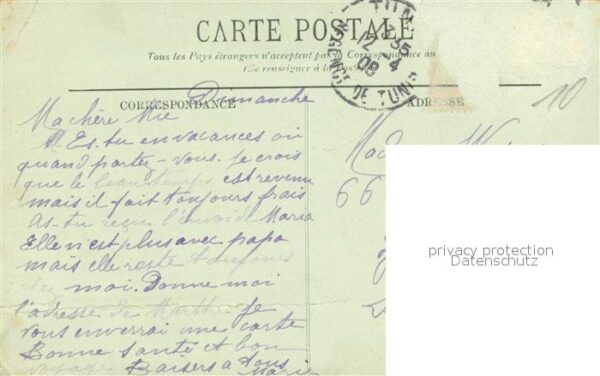 CARTE POSTALE
Tous les Pays étrangers n'acceptent pas la Correspondance au
(Se renseigner à la Poste
12 35
4
08
DE TUNIS
CORRESPONDANCE
ADRESSE
10
Dimanche
Ma chère Mie
Es-tu en vacances où
quand partez-vous. Je crois
que le beau temps est revenu
mais il fait toujours frais
As-tu reçu l'envoi Maria
Elle n'est plus avec papa
mais elle reste toujours
chez moi. Donne moi
l'adresse de Marthe je
vous enverrai une carte
Bonne santé et bon
voyage Baisers à tous
Marie
66
privacy protection
Datenschutz